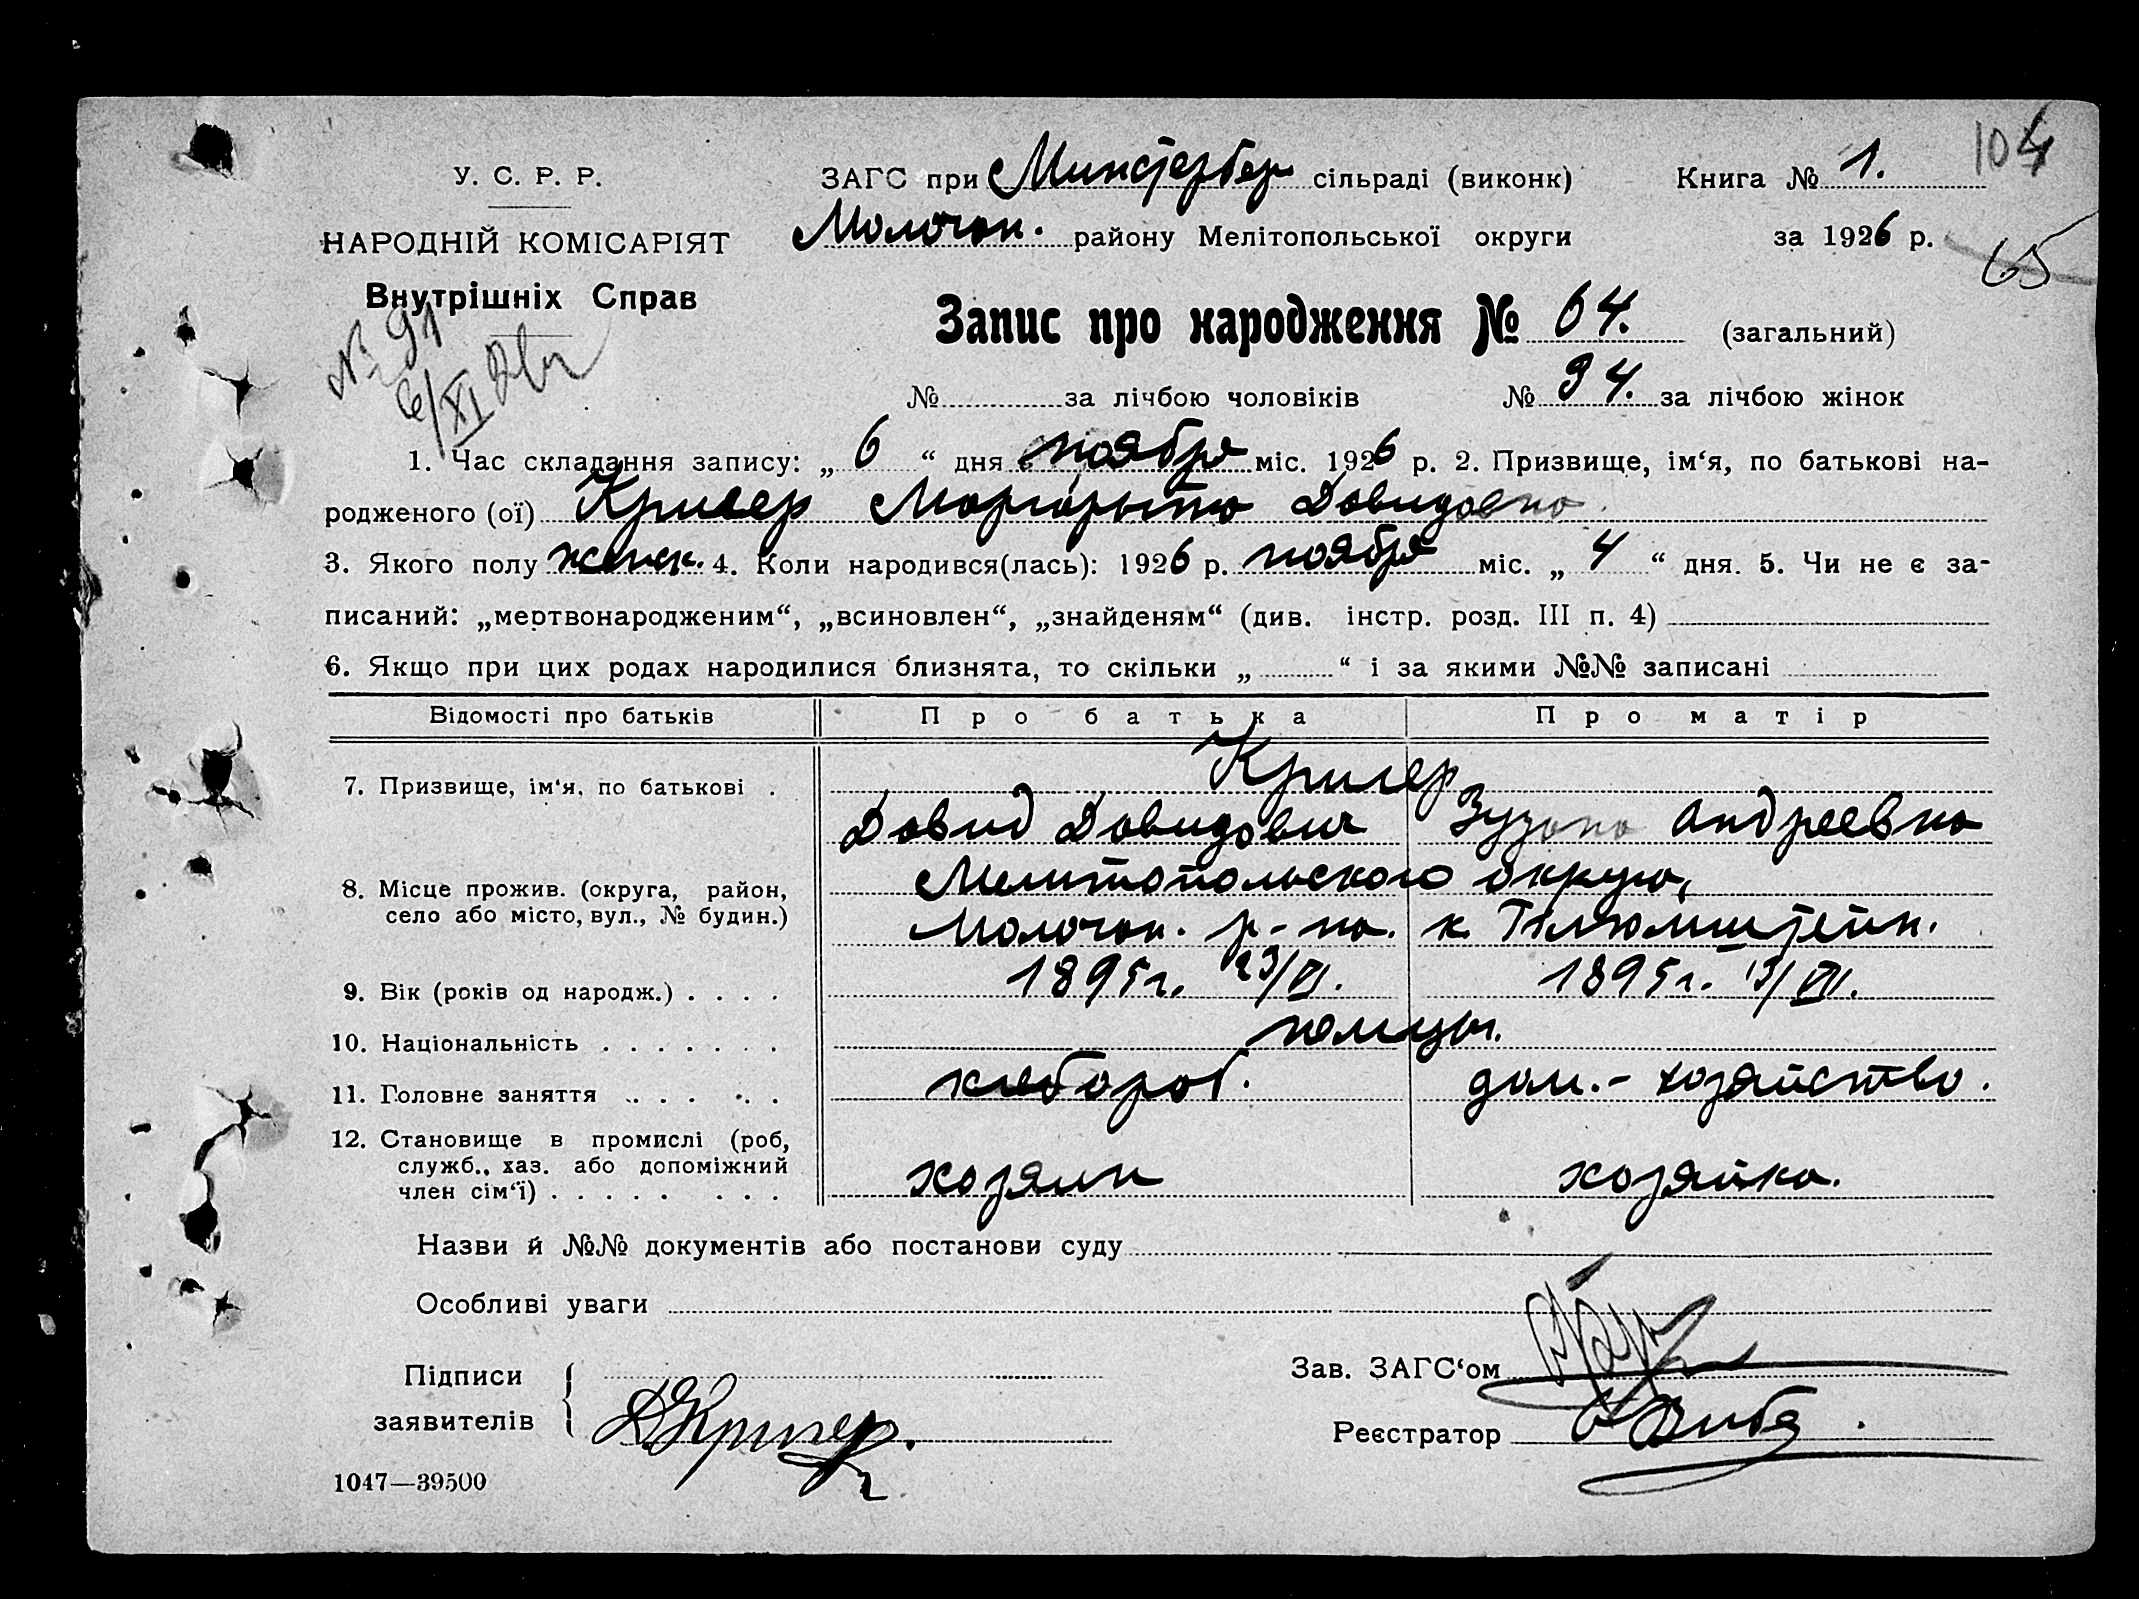 104
У. С. Р. Р. ЗАГС при Минстербер сільраді (виконк) Книга № 1.
НАРОДНІЙ КОМІСАРІЯТ Молочан. району Мелітопольської округи за 1926 р.
65
Внутрішніх Справ
Запис про народження № 64. (загальний)
№ 91
6/XI
№ за лічбою чоловіків № 34. за лічбою жінок
1. Час складання запису: „ 6 “ дня ноября міс. 1926 р. 2. Призвище, ім‘я, по батькові на-
родженого (ої) Кригер Маргарыта Давидовна
3. Якого полу женск. 4. Коли народився(лась): 1926 р. ноября міс. „ 4 “ дня. 5. Чи не є за-
писаний: „мертвонародженим“, „всиновлен“, „знайденям“ (див. інстр. розд. III п. 4)
6. Якщо при цих родах народилися близнята, то скільки „ “ і за якими №№ записані
Відомості про батьків Про батька Про матір
Кригер
7. Призвище, ім‘я, по батькові .
Давид Давидович Зузана Андреевна
8. Місце прожив. (округа, район, Мелитопольского округа,
село або місто, вул., № будин.)
Молочан. р-на. к. Тилюмштейн.
9. Вік (років од народж.) . . . . 1895г. 23/VI. 1895г. 13/VII.
10. Національність . . . . . . . немцы.
11. Головне заняття . . . . . . хлебороб. дом.- хозяйство.
12. Становище в промислі (роб,
служб., хаз. або допоміжний хозяин хозяйка.
член сім‘ї) . . . . . . . .
Назви й №№ документів або постанови суду
Особливі уваги
Підписи Зав. ЗАГС‘ом
заявителів ДКригер. Реєстратор
1047—39500